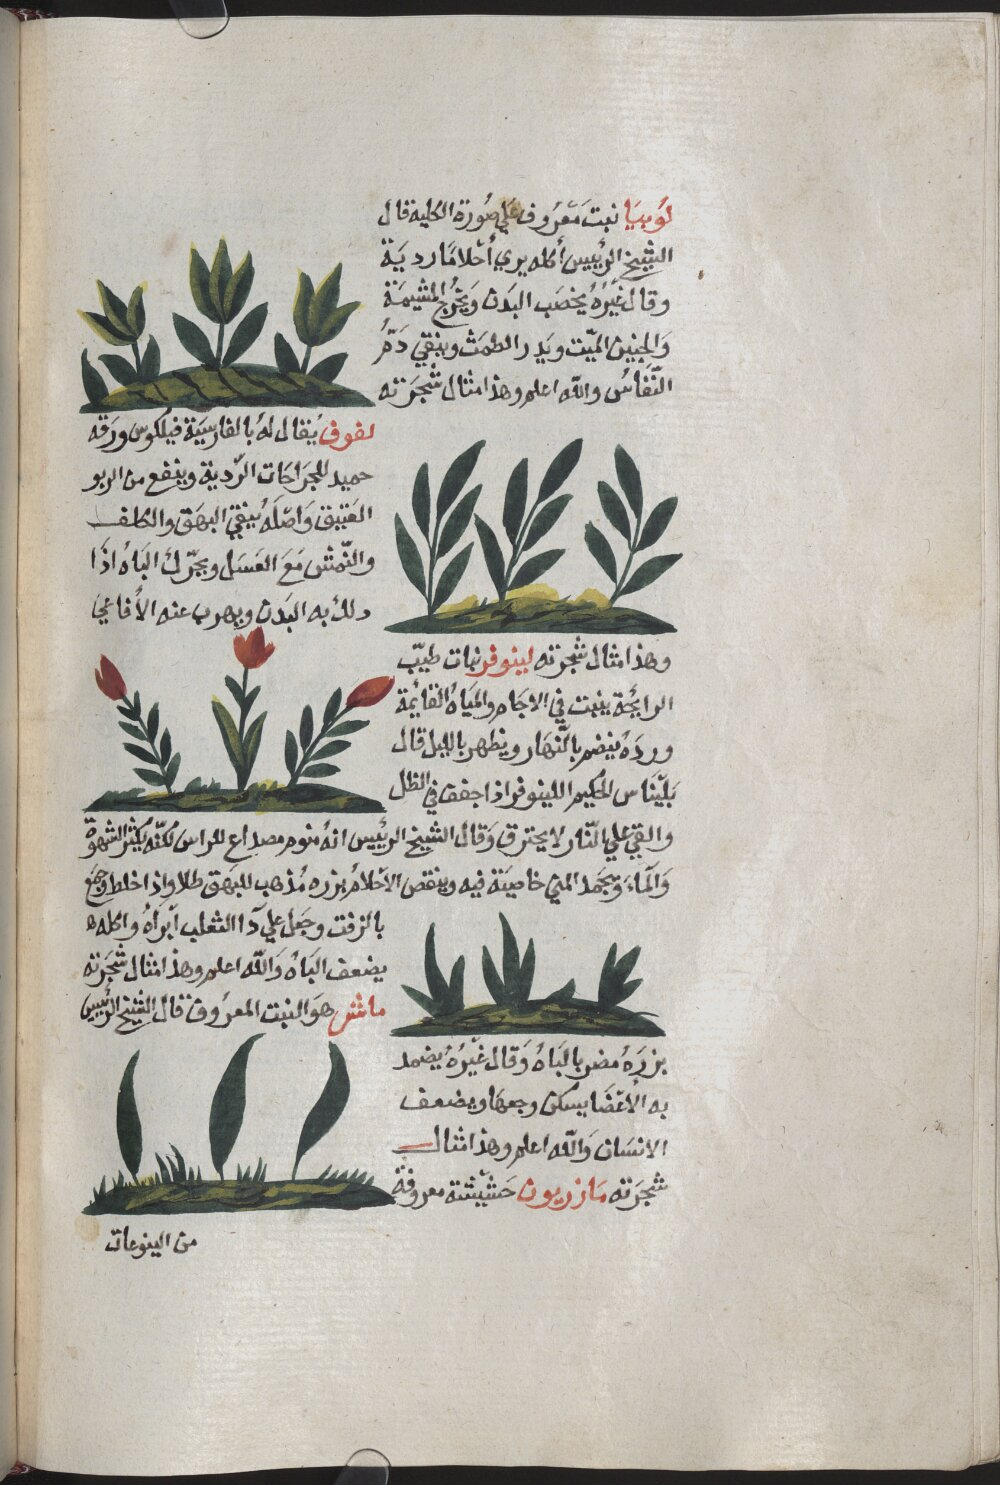 لوبيا نبت معروف على صورة الكلية قال
الشيخ الرئيس أكله يري أحلاما ردية
وقال غيره يخصب البدن ويخرج المشيمة
والجنين الميت ويدر الطمث وينقي دم
النفاس والله اعلم وهذا مثال شجرته
لفوف يقال له بالفارسية فيلكوس ورقه
جيد للجراحات الردية وينفع من الربو
العتيق واصله ينقي البهق والكلف
والنمش مع العسل ويحرك الباه اذا
دلك به البدن ويهرب عنه الأفاعي
وهذا مثال شجرته لينوفر نبات طيب
الرايحة ينبت في الاجام والمياه القايمة
ورده ينضم بالنهار ويظهر بالليل قال
بليناس الحكيم اللينوفر اذا جفف في الظل
والقي علي النار لا يحترق وقال الشيخ الرئيس انه منوم مصداع للراس لكنه يكثر الشهوة
والماء ويجمد المني خاصية فيه وينقص الاحلام بزره مذهب للبهق طلا واذا خلط وجمع
بالزفت وجعل علي دآ الثعلب ابراه واكله
يضعف الباه والله اعلم وهذا مثال شجرته
ماش هو النبت المعروف قال الشيخ الرئيس
بزره مضر بالباه وقال غيره يضمد
به الأعضا يسكن وجعها ويضعف
الانسان والله اعلم وهذا مثال
شجرته مازريون حشيشة معروفة
من الينوعات